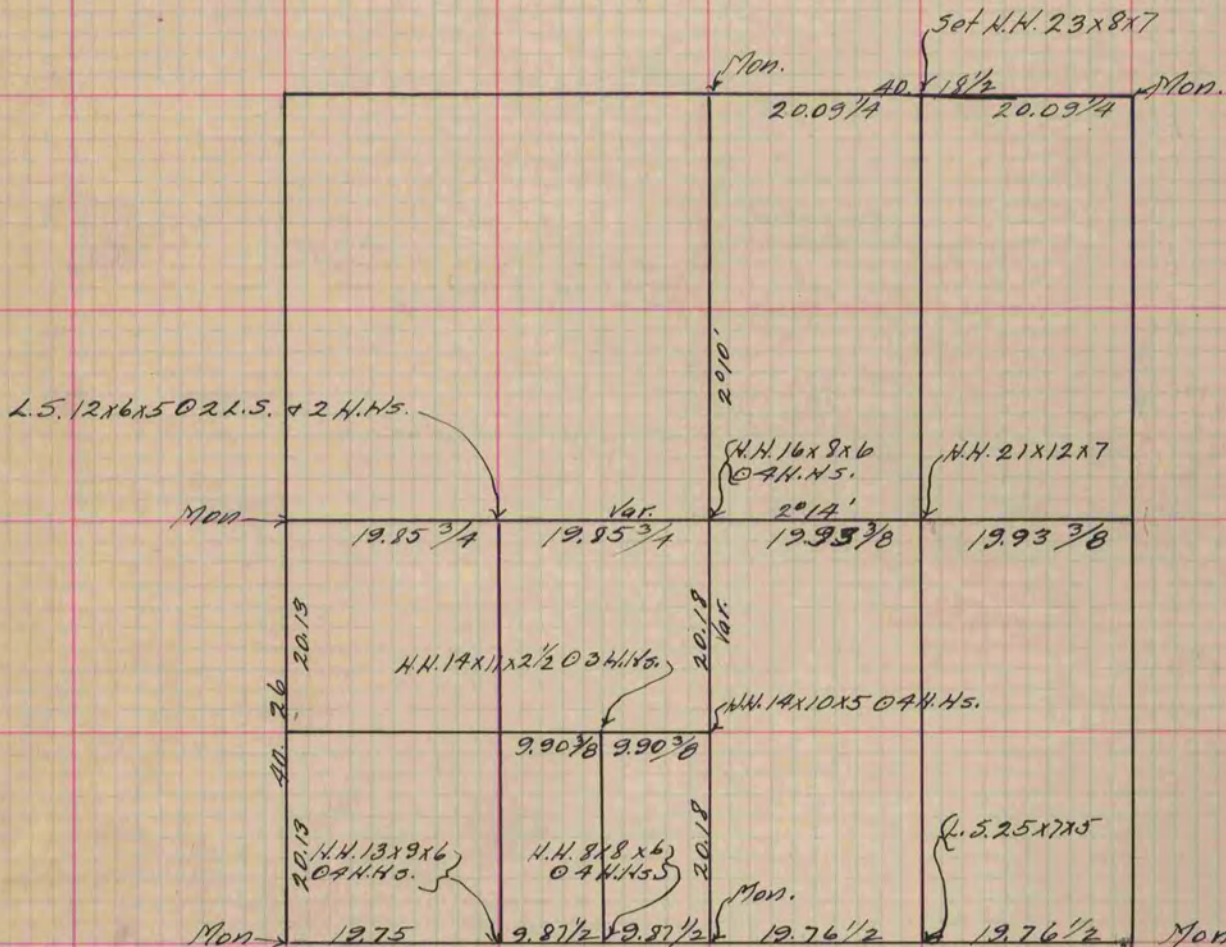 Set H.H. 23x8x7
Mon.
40. 18 1/2
Mon.
20.09 1/4
20.09 1/4
2°10'
L.S. 12x6x5 ⊙ 2 L.S. & 2 H.Hs.
H.H. 16x8x6
⊙ 4 H.Hs.
H.H. 21x12x7
Mon
Var.
2°14'
19.85 3/4
19.85 3/4
19.93 3/8
19.93 3/8
20.13
20.18
Var.
H.H. 14x11x2 1/2 ⊙ 3 H.Hs.
40. 26
H.H. 14x10x5 ⊙ 4 H.Hs.
9.90 3/8
9.90 3/8
20.13
H.H. 13x9x6
⊙ 4 H.Hs.
H.H. 8x8x6
⊙ 4 H.Hs
20.18
L.S. 25x7x5
Mon.
Mon
19.75
9.87 1/2
9.87 1/2
19.76 1/2
19.76 1/2
Mon